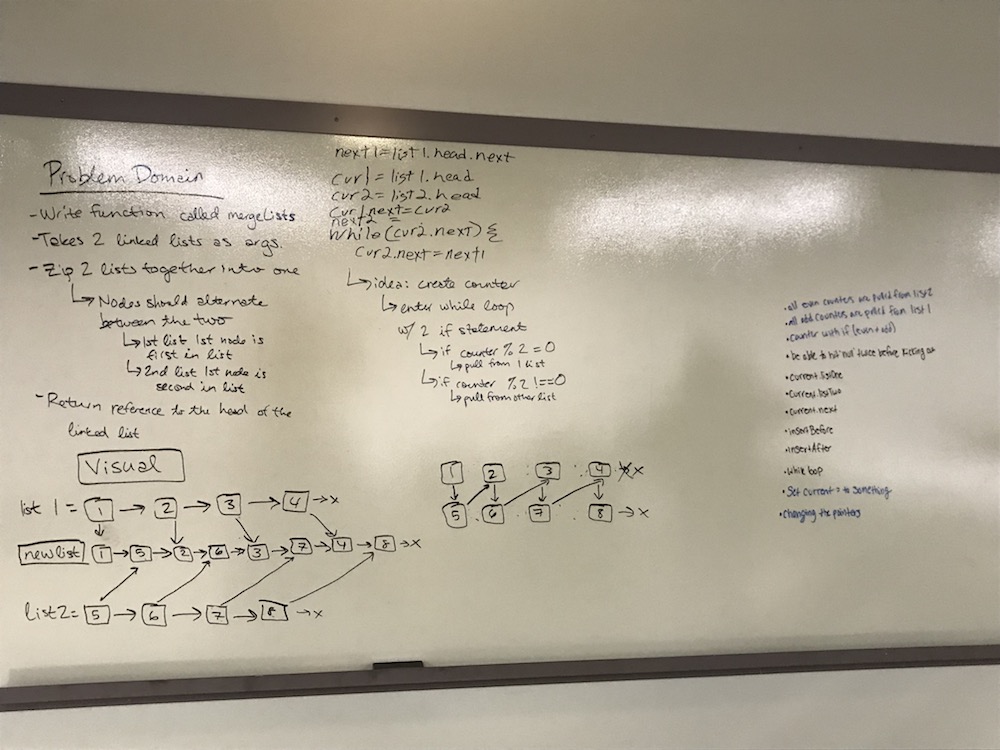 Problem Domain
- Write function called mergeLists
- Takes 2 linked lists as args.
- Zip 2 lists together into one
↳ Nodes should alternate
between the two
↳ 1st list 1st node is
first in list
↳ 2nd list 1st node is
second in list
- Return reference to the head of the
linked list
Visual
list 1 = 1 → 2 → 3 → 4 → x
new list 1 → 5 → 2 → 6 → 3 → 7 → 4 → 8 → x
list2 = 5 → 6 → 7 → 8 → x
next1 = list1.head.next
cur1 = list1.head
cur2 = list2.head
cur1.next = cur2
next2 =
While (cur2.next) {
cur2.next = next1
↳ idea: create counter
↳ enter while loop
w/ 2 if statement
↳ if counter % 2 = 0
↳ pull from 1 list
↳ if counter % 2 !== 0
↳ pull from other list
1 2 3 4 x
5 6 7 8 → x
• all even counters are pulled from list 2
• All odd counters are pulled from list 1
• counter with if (even + odd)
• be able to hit null twice before kicking out
• current.listOne
• current.listTwo
• current.next
• insertBefore
• insertAfter
• while loop
• Set current = to something
• Changing the pointers